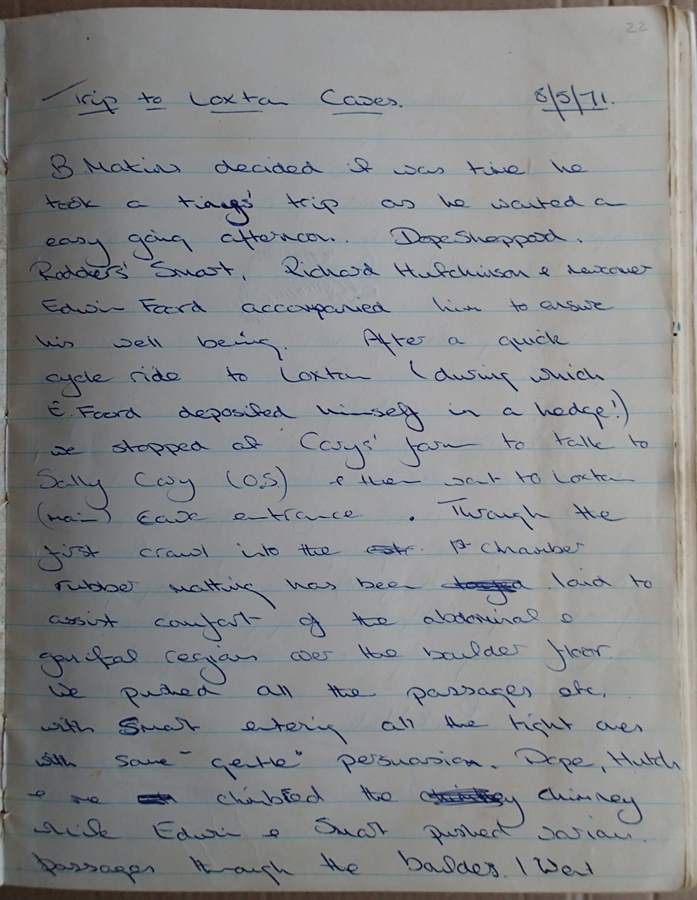 22
Trip to Loxton Caves. 8/5/71.
B Makins decided it was time he
took a tings' trip as he wanted a
easy going afternoon. Dope Sheppard,
Rodders' Smart, Richard Hutchinson & newcomer
Edwin Foord accompanied him to ensure
his well being. After a quick
cycle ride to Loxton (during which
E. Foord deposited himself in a hedge!)
we stopped at Carys' farm to talk to
Sally Cary (O.S) & then went to Loxton
(main) Cave entrance. Through the
first crawl into the 1st chamber
rubber matting has been laid to
assist comfort of the abdominal &
genital regions over the boulder floor.
We pushed all the passages etc.
with Smart entering all the tight ones
with some "gentle" persuasion. Dope, Hutch
& me climbed the chimney
while Edwin & Smart pushed various
passages through the boulders. I went